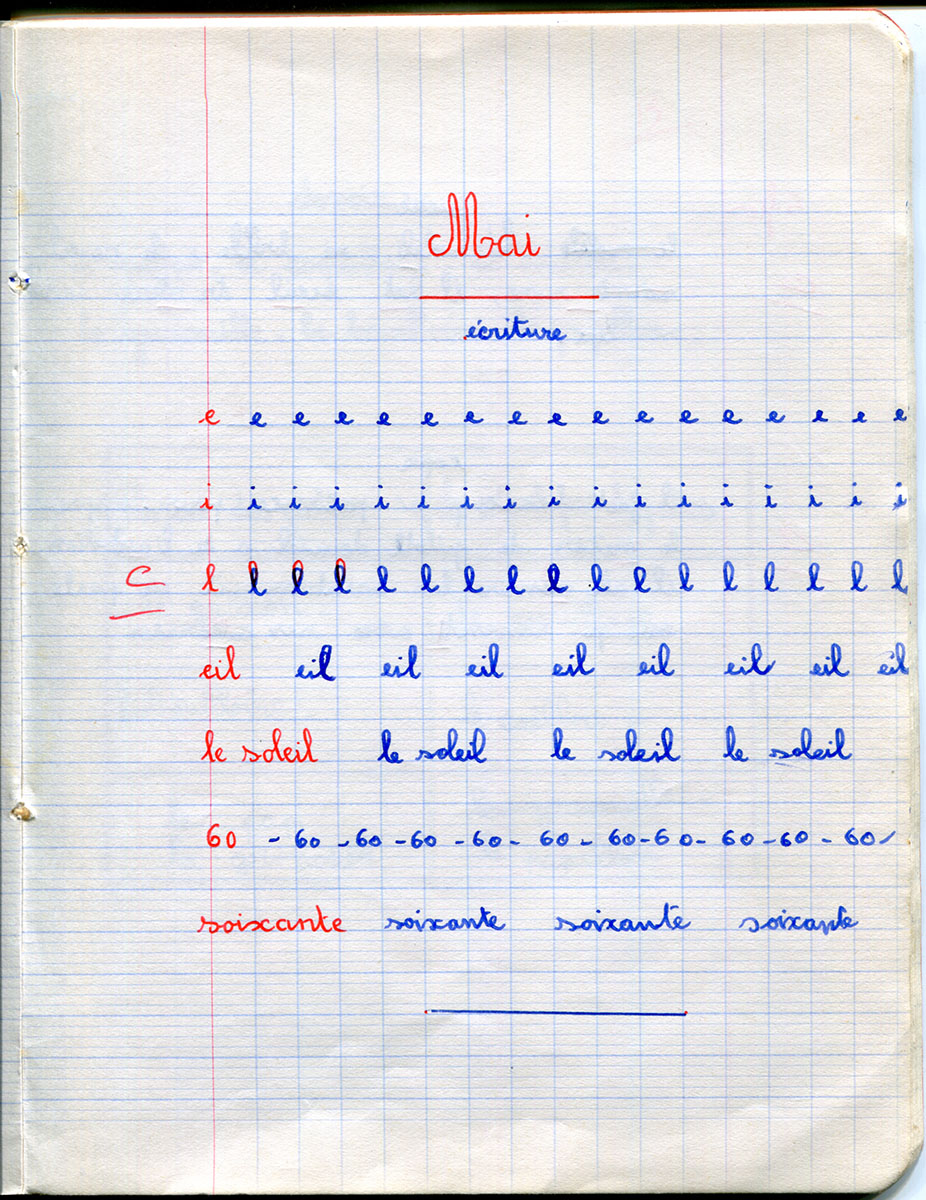 Mai
écriture
e e e e e e e e e e e e e e e e e
i i i i i i i i i i i i i i i i i
C l l l l l l l l l l l l l l l l l
eil eil eil eil eil eil eil eil eil
le soleil le soleil le soleil le soleil
60 - 60 - 60 - 60 - 60 - 60 - 60 - 60 - 60 - 60 - 60
soixante soixante soixante soixante